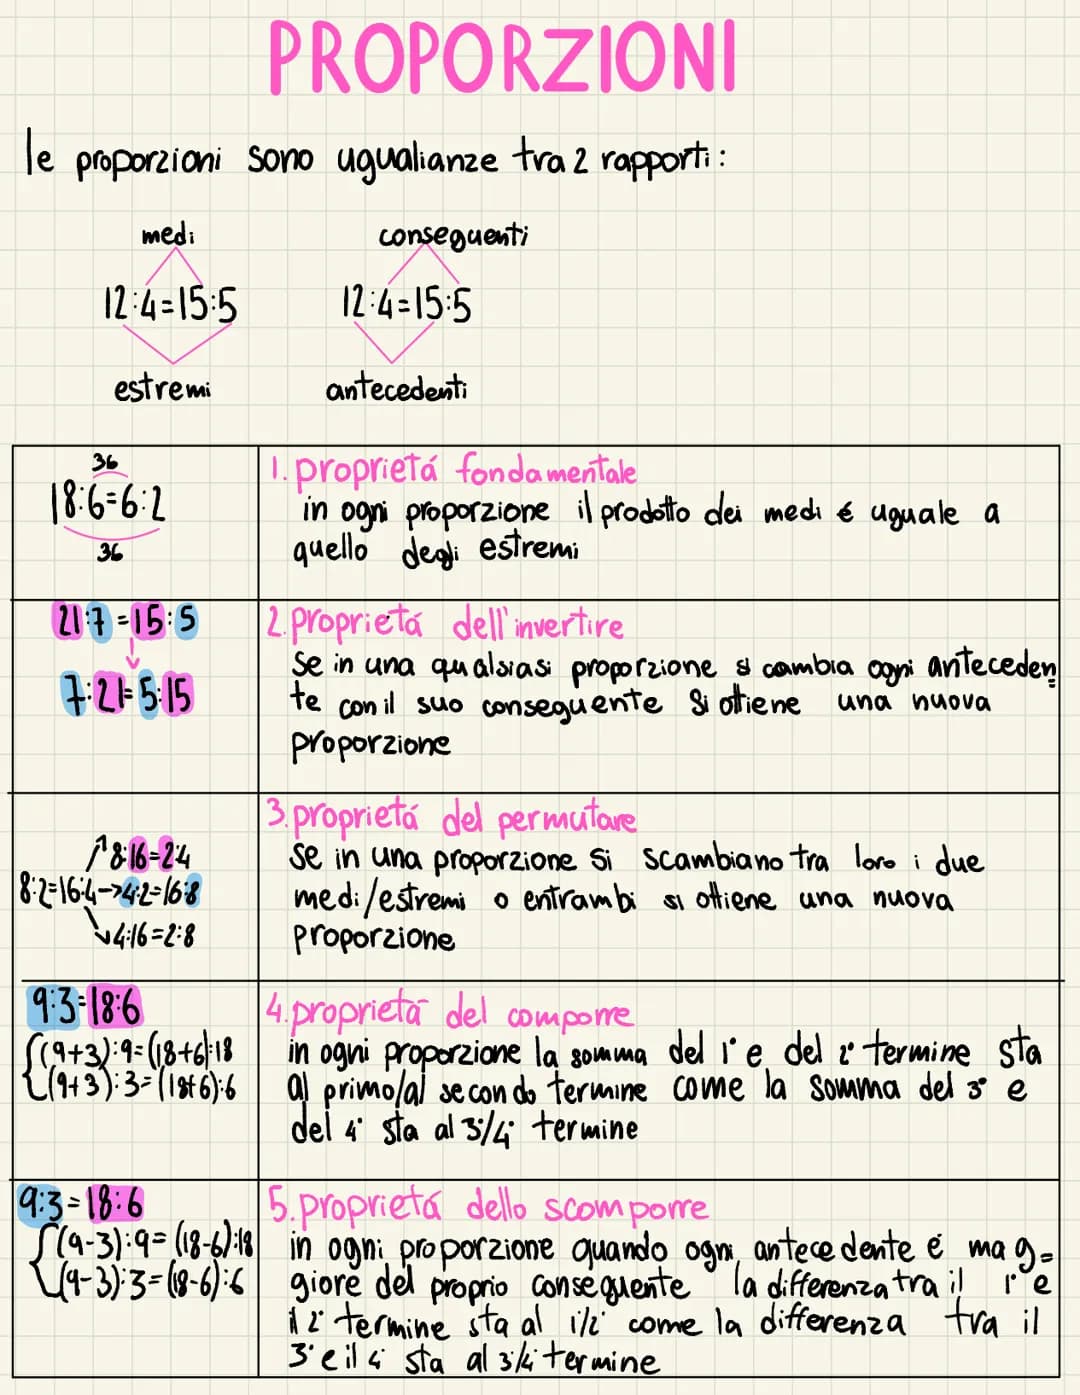 PROPORZIONI
le proporzioni sono ugualianze tra 2 rapporti:
medi
conseguenti
12:4=15:5
12:4=15:5
estremi
antecedenti
36
18:6=6:2
36
1. proprietá fondamentale
in ogni proporzione il prodotto dei medi é uguale a
quello degli estremi
21:7=15:5
7:21=5:15
2. proprietá dell'invertire
se in una qualsiasi proporzione si cambia ogni anteceden
te con il suo conseguente si ottiene una nuova
proporzione
8:16=24
8:2=16:4->4:2=16:8
4:16=2:8
3. proprietá del permutare
se in una proporzione si scambiano tra loro i due
medi/estremi o entrambi si ottiene una nuova
proporzione
9:3=18:6
(9+3):9=(18+6):18
(9+3):3=(18+6):6
4. proprietá del comporre
in ogni proporzione la somma del 1° e del 2° termine sta
al primo/al secondo termine come la somma del 3° e
del 4° sta al 3°/4° termine
9:3=18:6
(9-3):9=(18-6):18
(9-3):3=(18-6):6
5. proprietá dello scomporre
in ogni proporzione quando ogni antecedente é mag-
giore del proprio conseguente la differenza tra il 1° e
il 2° termine sta al 1°/2° come la differenza tra il
3° e il 4° sta al 3°/4° termine